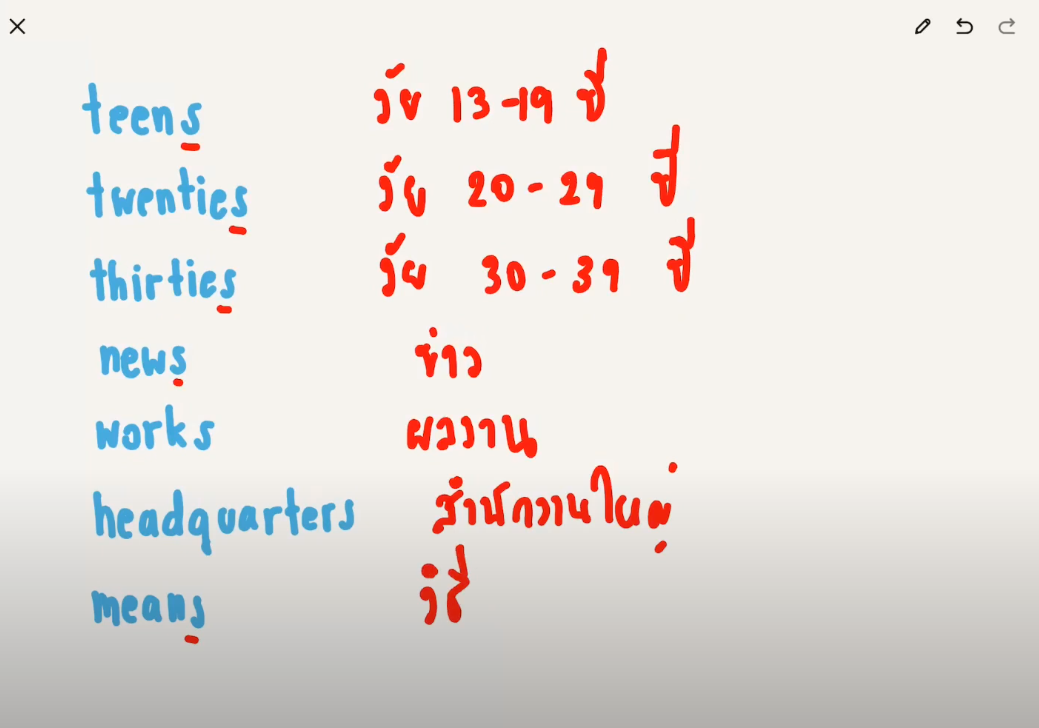 teens วัย 13-19 ปี
twenties วัย 20-29 ปี
thirties วัย 30-39 ปี
news ข่าว
works ผลงาน
headquarters สำนักงานใหญ่
means วิธี